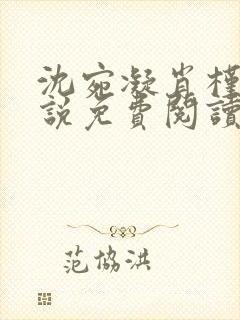 沈宛凝肖槿
說免費閱讀
范協洪